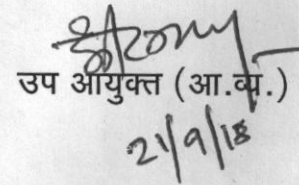 उप आयुक्त (आ.व्य.)
21/9/18